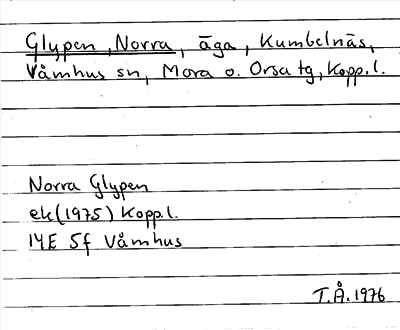 Glypen, Norra, äga, Kumbelnäs,
Våmhus sn, Mora o. Orsa tg, Kopp.l.
Norra Glypen
ek(1975) Kopp.l.
14E 5f Våmhus
T.Å.1976